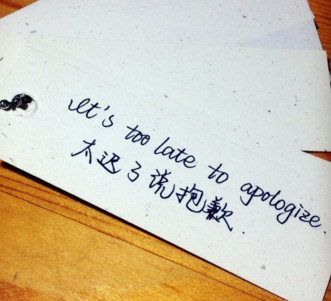 It's too late to apologize.
太迟了说抱歉.